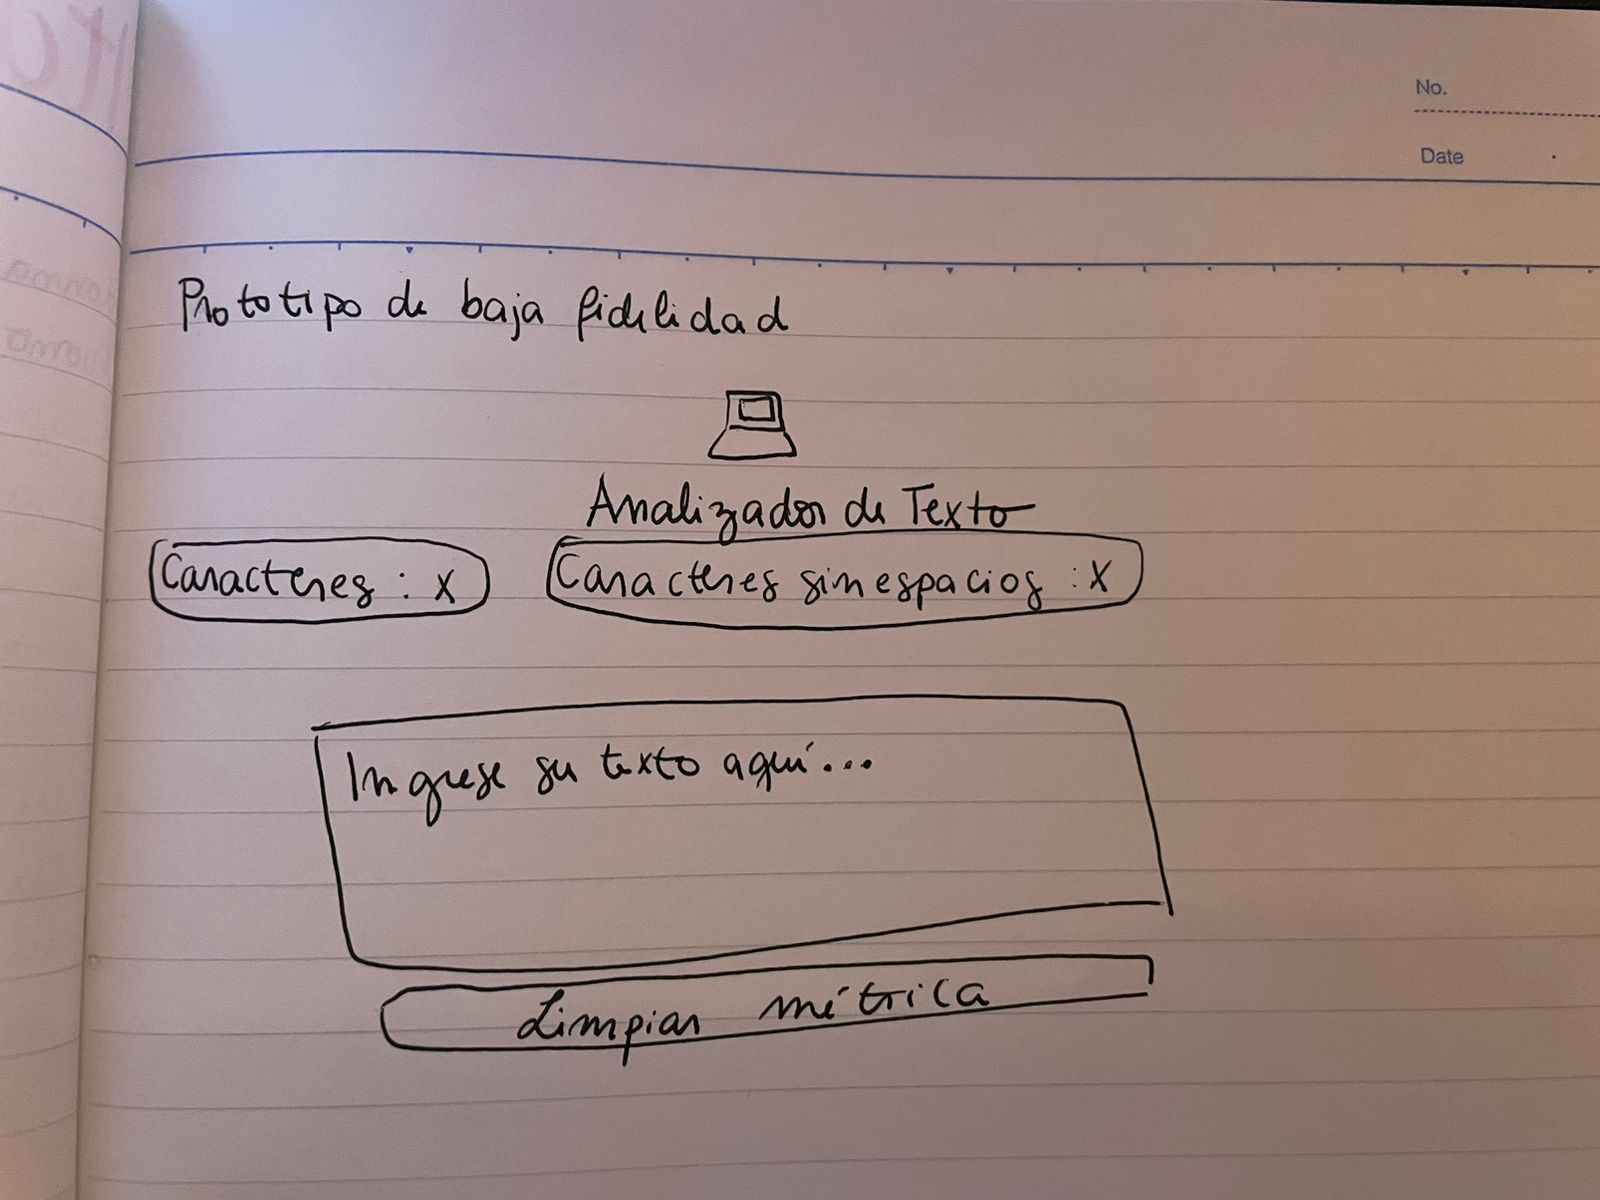 No.
Date
Prototipo de baja fidelidad
Analizador de Texto
Caracteres : X
Caracteres sin espacios : X
Ingrese su texto aquí...
Limpiar métrica